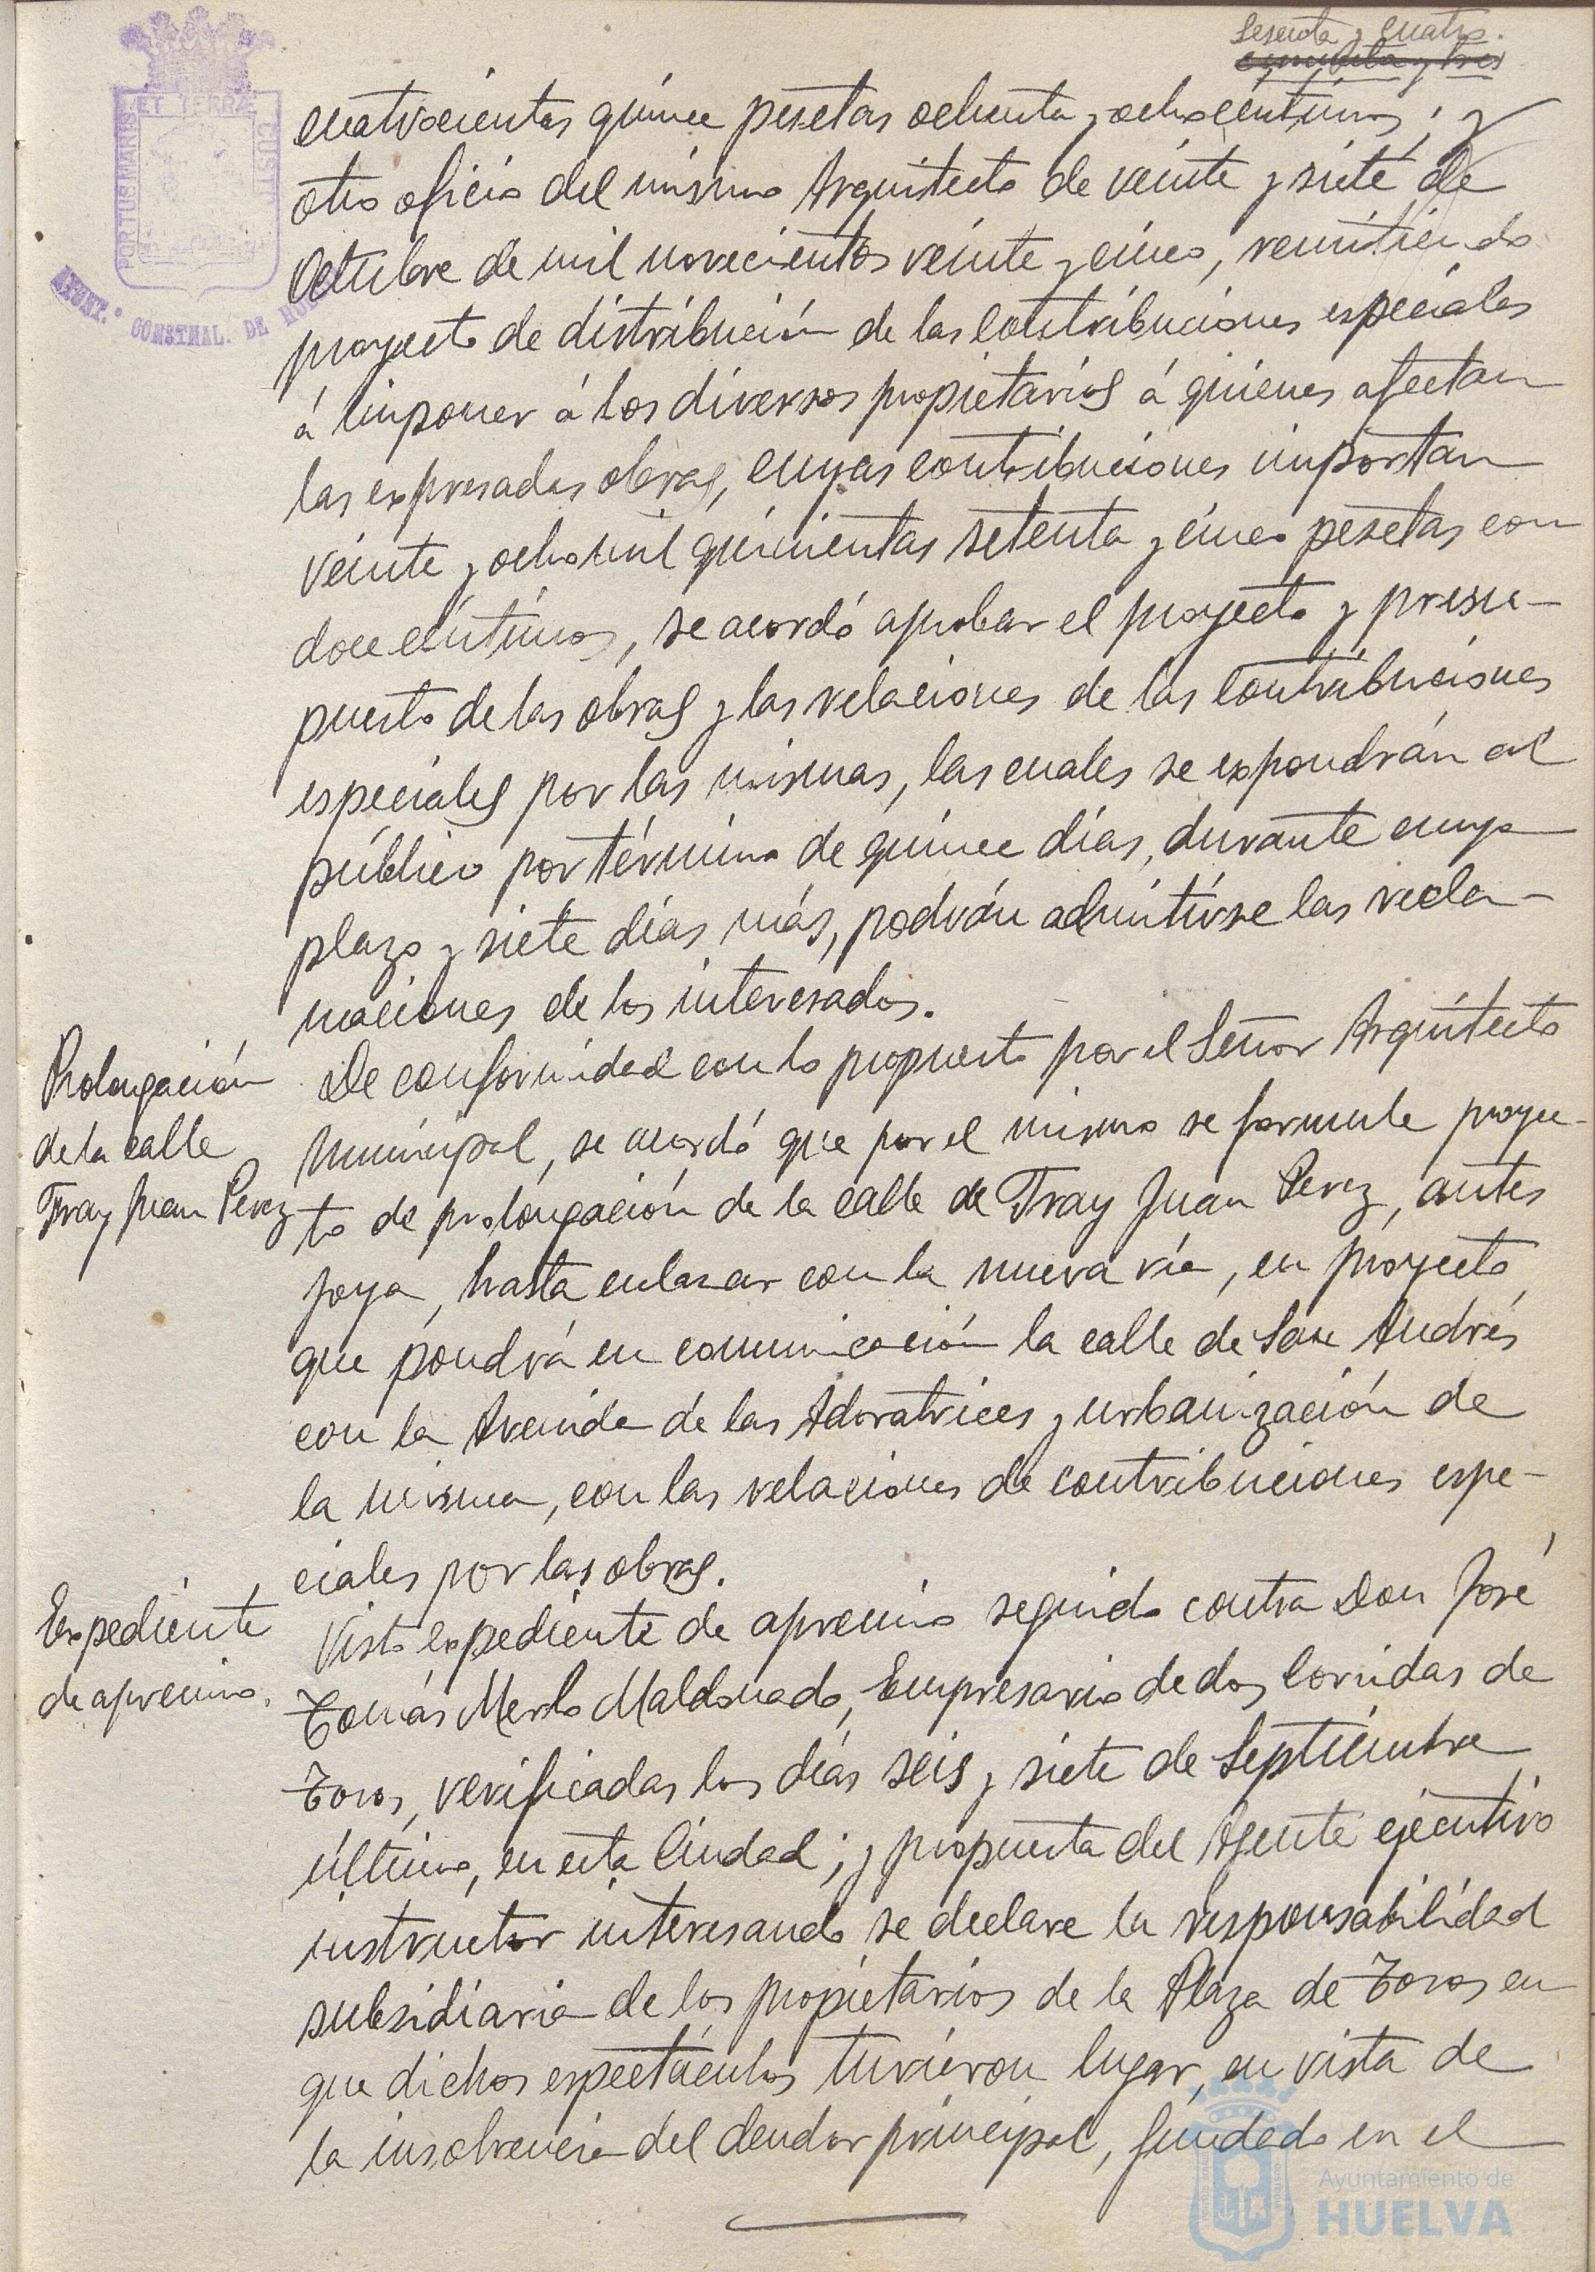 Sesenta y cuatro.
cincuenta y tres
PORTUS MARIS ET TERRÆ CUSTI
AYUNT.º CONSTNAL. DE HU
cuatrocientas quince pesetas ochenta y ocho céntimos; y
otro oficio del mismo Arquitecto de veinte y siete de
Octubre de mil novecientos veinte y cinco, remitiendo
proyecto de distribución de las Contribuciones especiales
á imponer á los diversos propietarios á quienes afectan
las expresadas obras, cuyas contribuciones importan
veinte y ocho mil quinientas setenta y cinco pesetas con
doce céntimos, se acordó aprobar el proyecto y presu-
puesto de las obras y las relaciones de las Contribuciones
especiales por las mismas, las cuales se expondrán al
público por término de quince días, durante cuyo
plazo y siete días más, podrán admitirse las recla-
maciones de los interesados.
Prolongación
de la calle
Fray Juan Perez
De conformidad con lo propuesto por el Señor Arquitecto
Municipal, se acordó que por el mismo se formule proyec-
to de prolongación de la calle de Fray Juan Perez, antes
Joya, hasta enlazar con la nueva vía, en proyecto,
que pondrá en comunicación la calle de San Andrés
con la Avenida de las Adoratrices y urbanización de
la misma, con las relaciones de contribuciones espe-
ciales por las obras.
Expediente
de apremio.
Visto expediente de apremio seguido contra Don José
Tomás Merlo Maldonado, Empresario de dos Corridas de
Toros, verificadas los días seis y siete de Septiembre
último, en esta Ciudad; y propuesta del Agente ejecutivo
instructor interesando se declare la responsabilidad
subsidiaria de los propietarios de la Plaza de Toros en
que dichos espectáculos tuvieron lugar, en vista de
la insolvencia del deudor principal, fundado en el
Ayuntamiento de
HUELVA